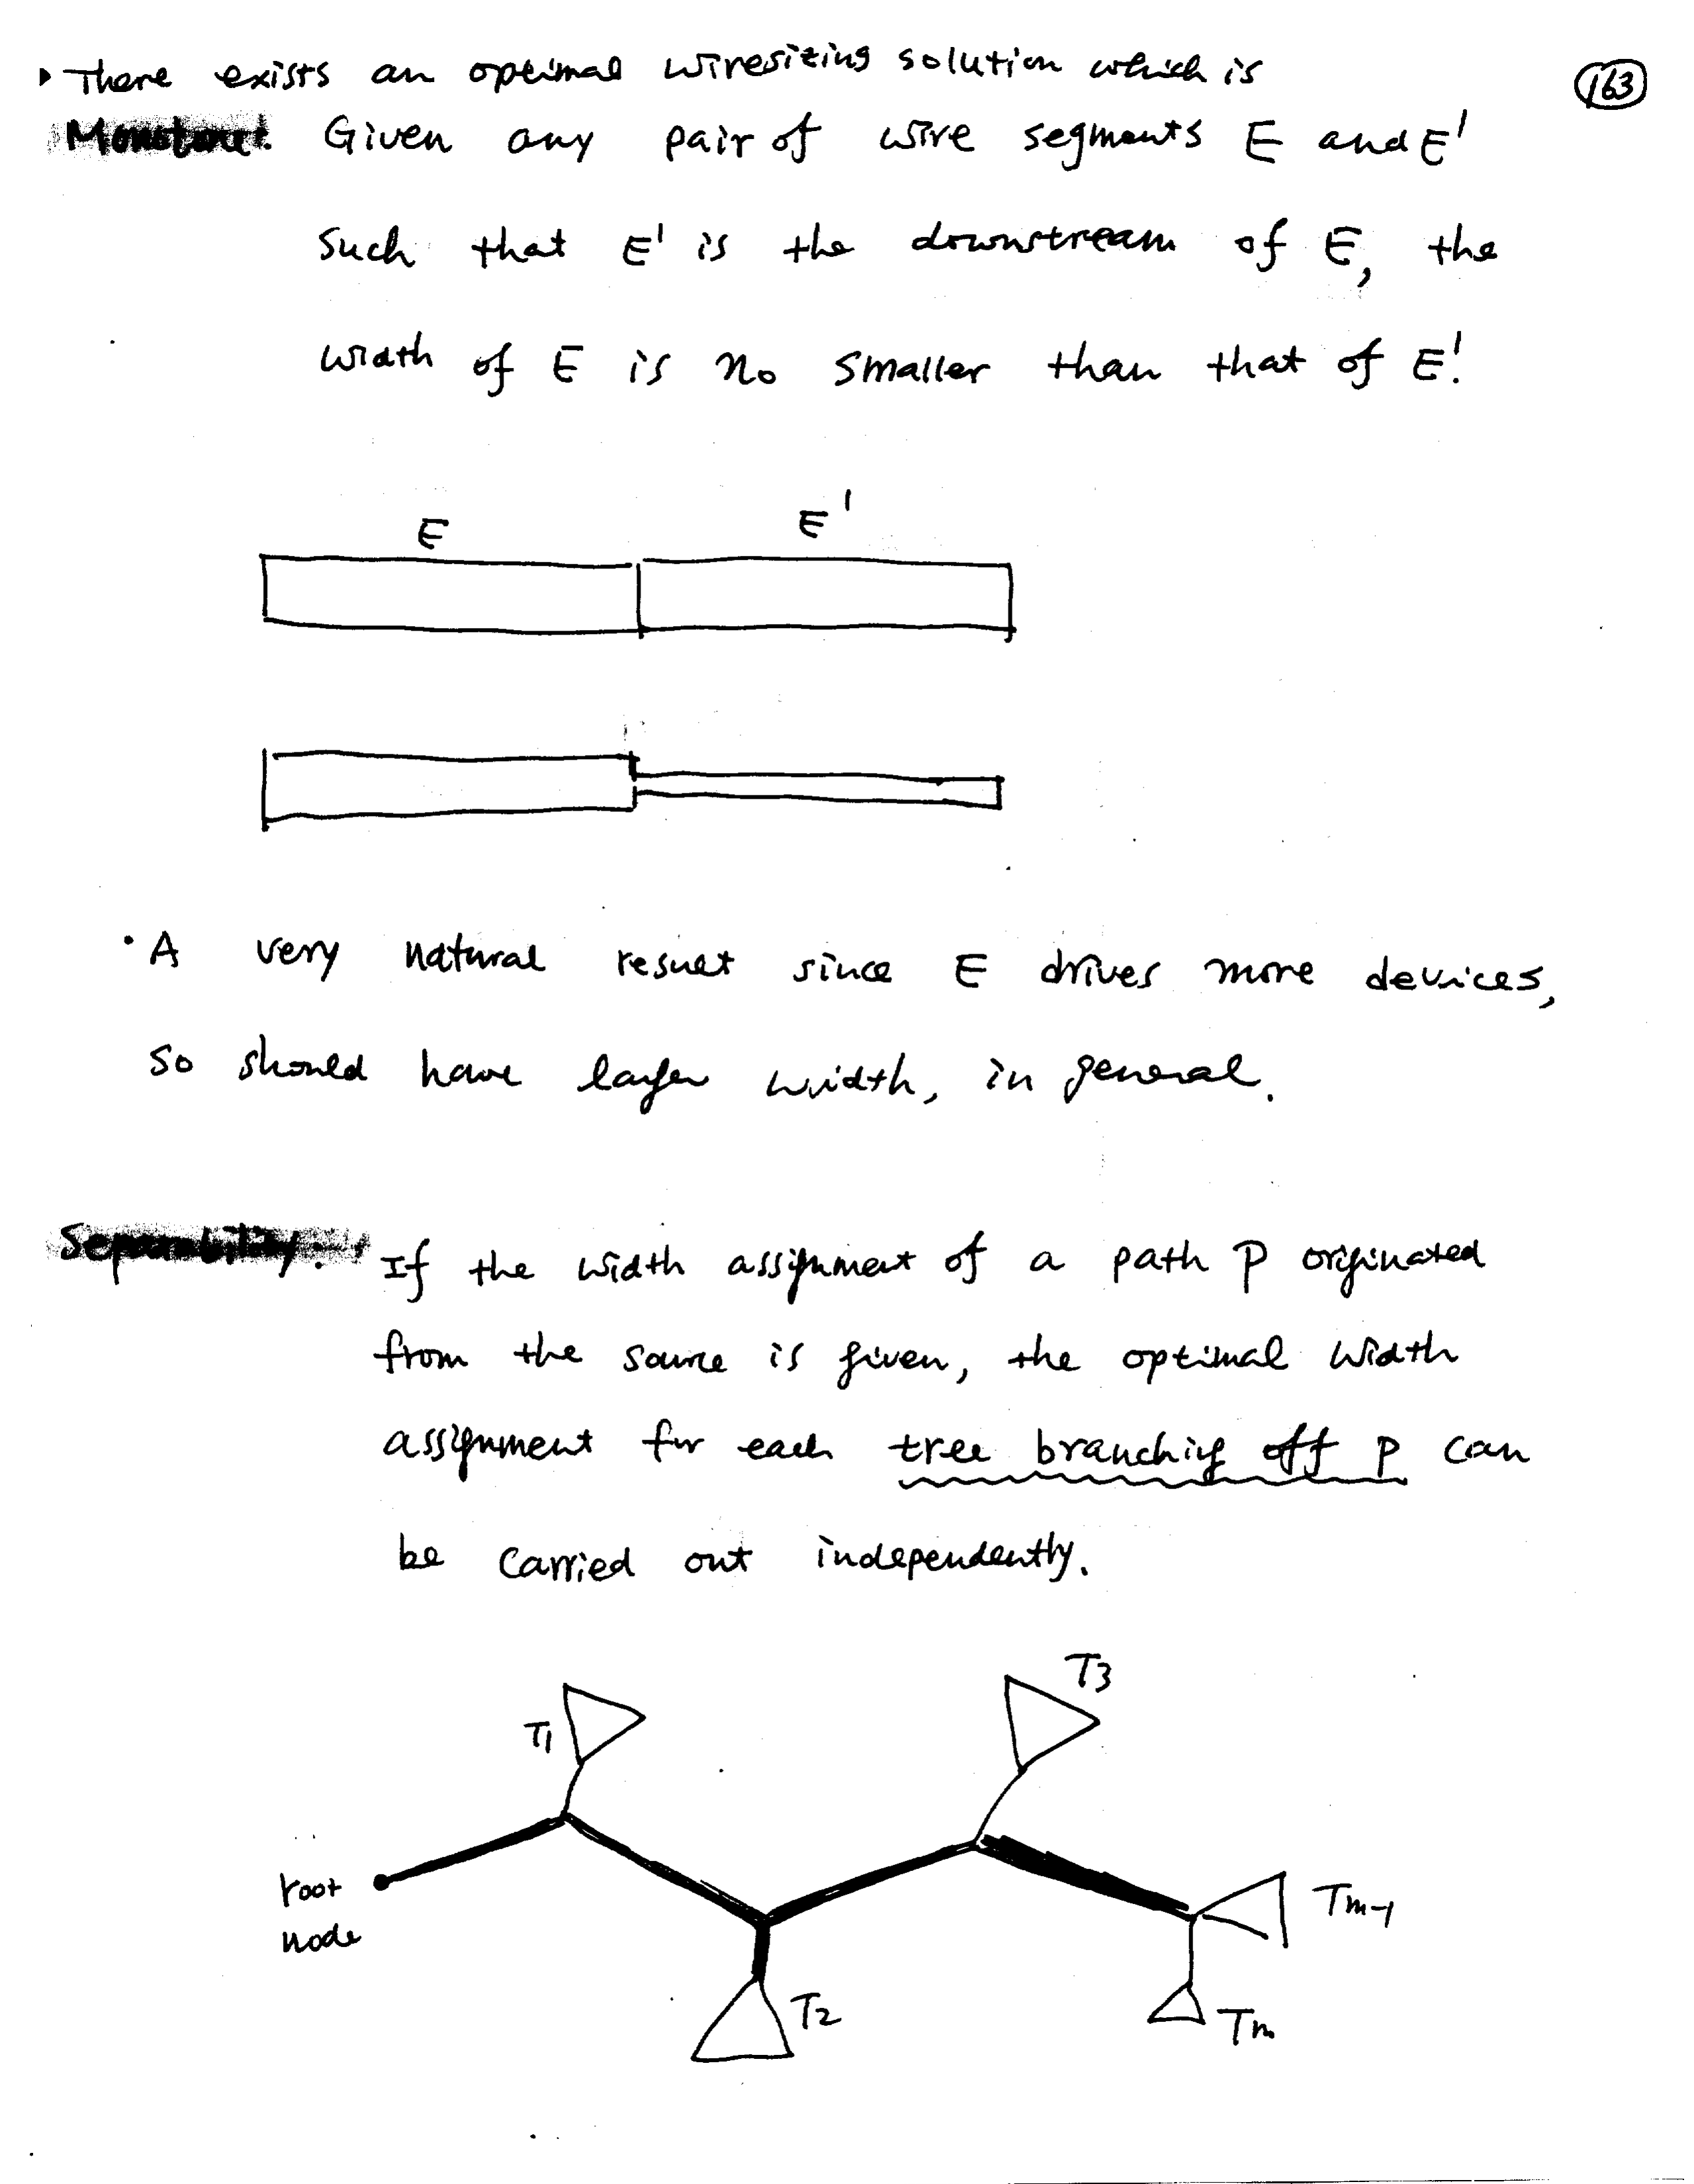 ‣ There exists an optimal wiresizing solution which is
163
Monotone: Given any pair of wire segments E and E'
Such that E' is the downstream of E, the
width of E is no smaller than that of E'.
E E'
• A very natural result since E drives more devices,
so should have larger width, in general.
Separability: If the width assignment of a path P originated
from the source is given, the optimal width
assignment for each tree branching off P can
be carried out independently.
T3
T1
root
node
Tm-1
T2
Tm